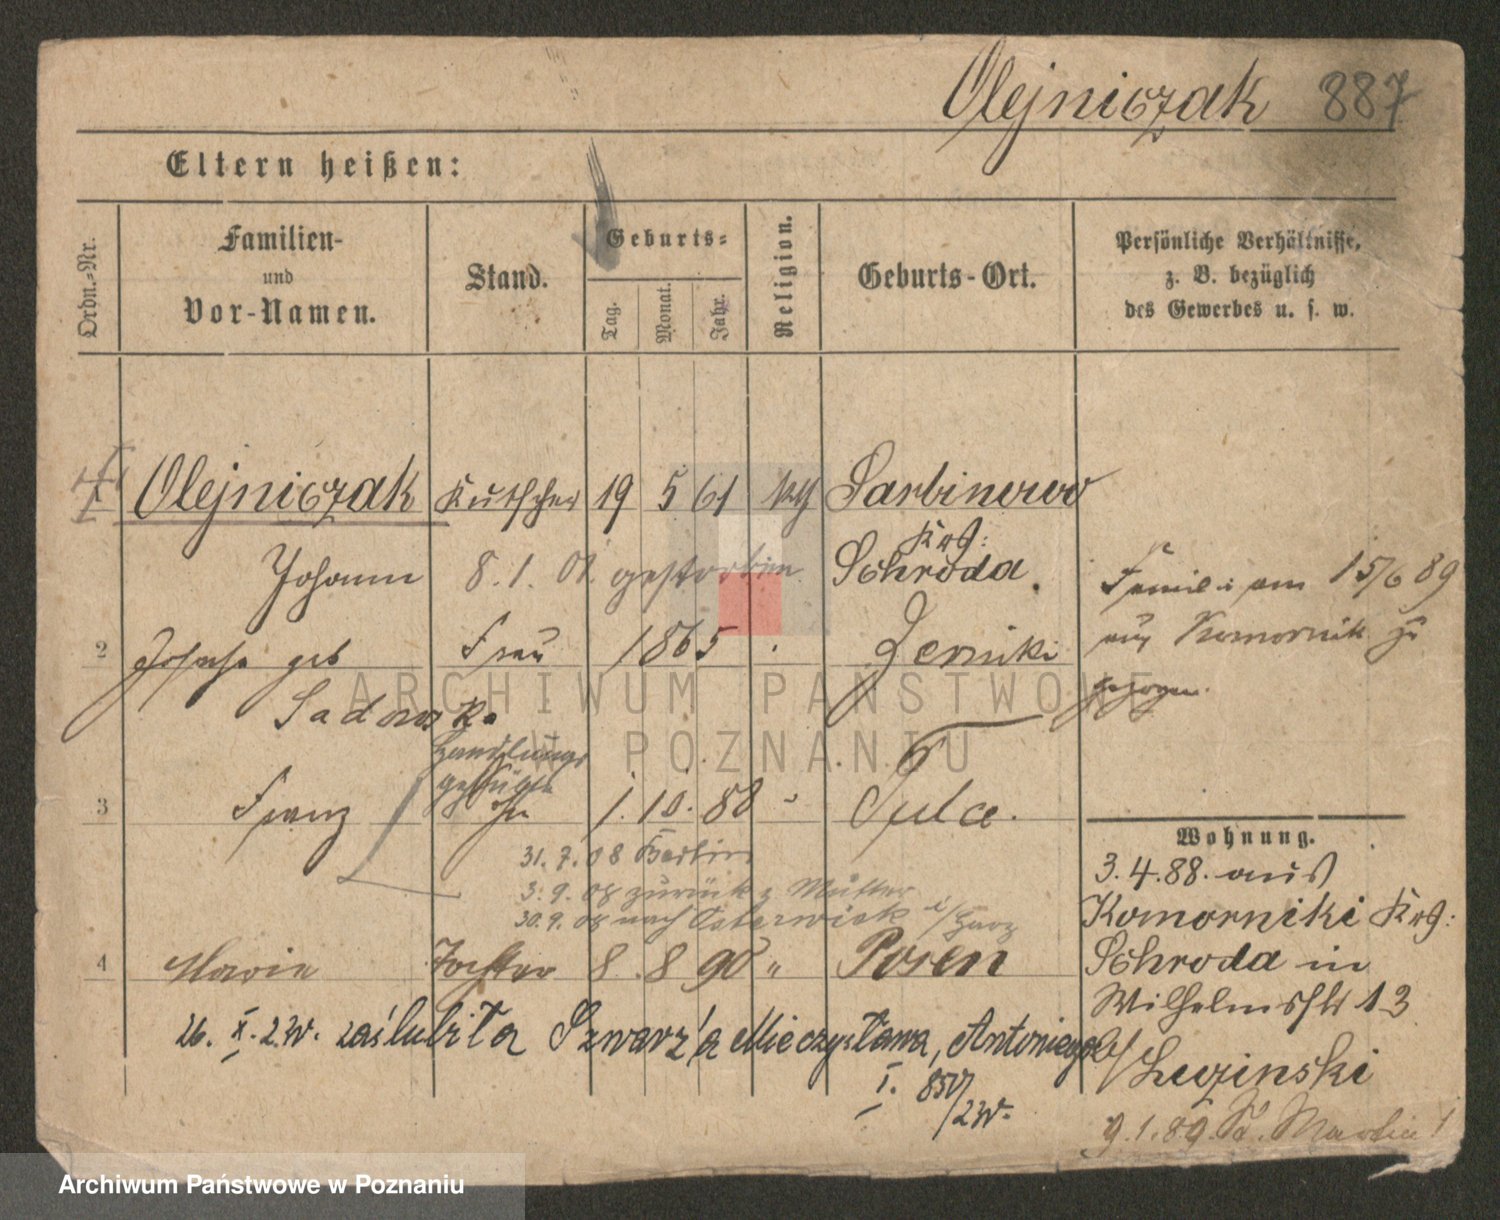 Olejniczak 887
Eltern heißen:
Ordn.-Nr.
Familien-
und
Vor-Namen.
Stand.
Geburts-
Tag.
Monat.
Jahr.
Religion.
Geburts-Ort.
Persönliche Verhältnisse,
z. B. bezüglich
des Gewerbes u. s. w.
1 Olejniczak Kutscher 19 5 61 kath Sarbinowo
Krs:
Johann 8. 1. 01. gestorben Schroda.
2 geb Frau 1865 Zerniki
Sadowska
Familie am 15/6 89
aus Komornik zu
gezogen.
Handlungs
gehülfe
3 Franz 1. 10. 88 Tulce.
31. 7. 08 Berlin
3. 9. 08 zurück z Mutter
30. 9. 08 nach Osterwieck i/Harz
4 Marie Tochter 8. 8 90 " Posen
26. X. 2 zaślubiła Szwarz'a Mieczysława, Antoniego
I. 850/
Wohnung.
3. 4. 88. aus
Komorniki Krs:
Schroda in
Wilhelmsstr 13
b/ Luzinski
9. 1. 89. St. Martin
ARCHIWUM PAŃSTWOWE
W POZNANIU
Archiwum Państwowe w Poznaniu